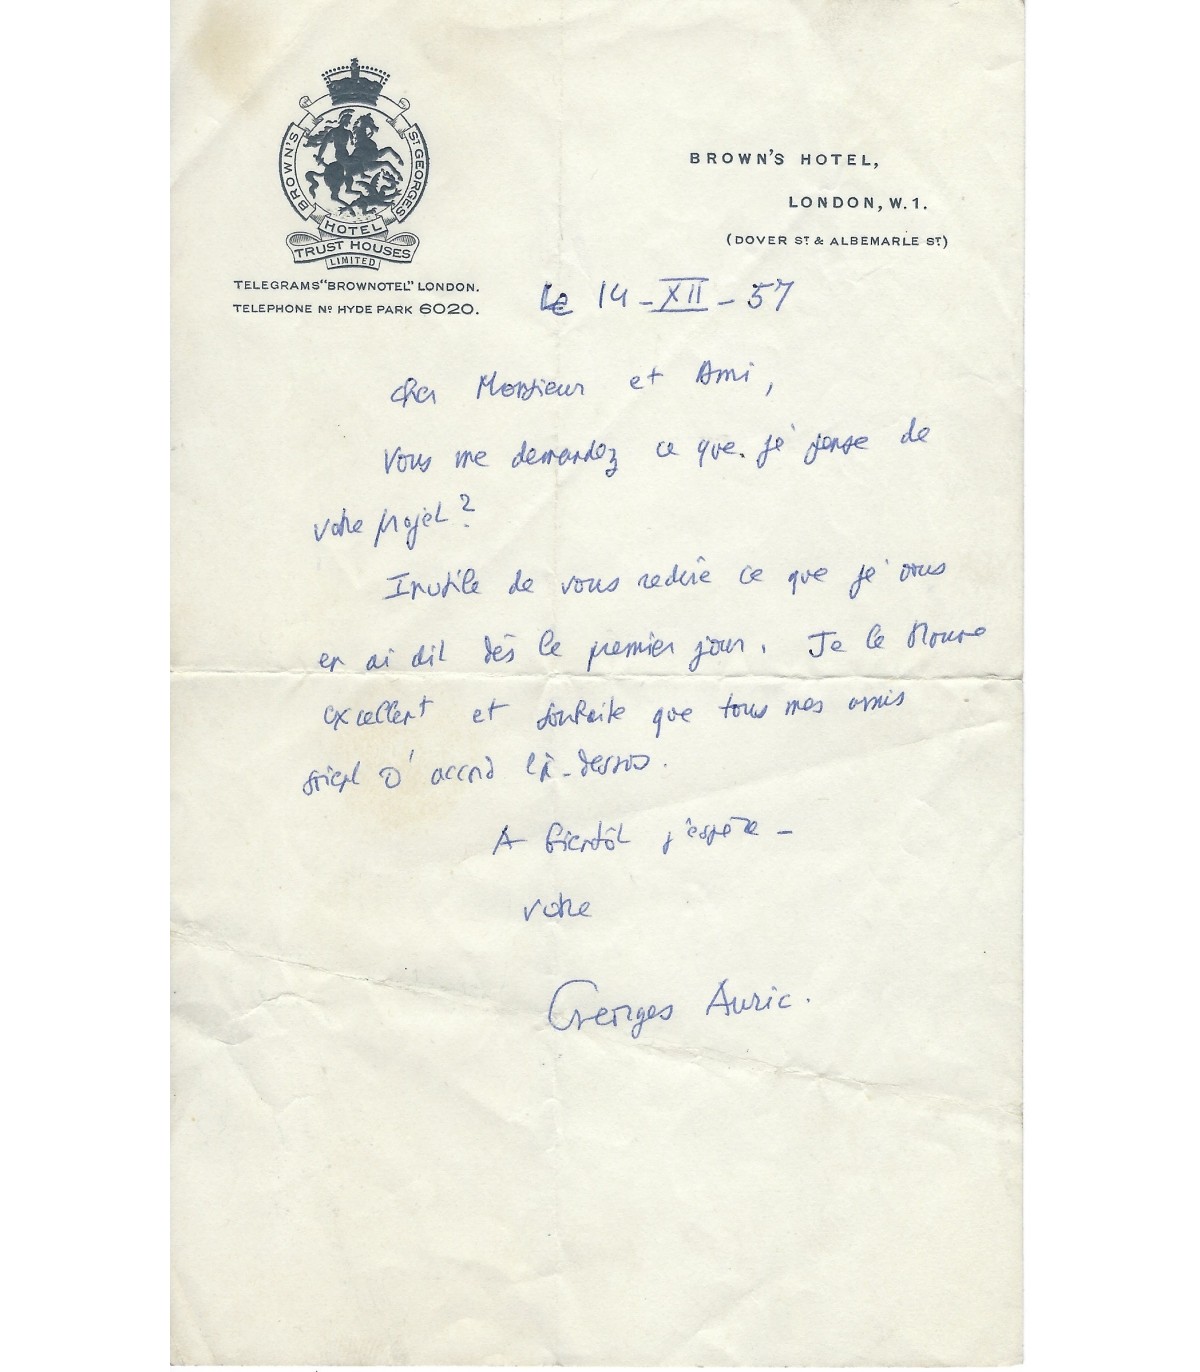 BROWN'S
ST GEORGES
HOTEL
TRUST HOUSES
LIMITED
TELEGRAMS "BROWNOTEL" LONDON.
TELEPHONE Nº HYDE PARK 6020.
BROWN'S HOTEL,
LONDON, W.1.
(DOVER ST & ALBEMARLE ST)
Le 14-XII-57
Cher Monsieur et Ami,
Vous me demandez ce que je pense de
votre projet?
Inutile de vous redire ce que je vous
en ai dit dès le premier jour. Je le trouve
excellent et souhaite que tous mes amis
soient d'accord là-dessus.
A bientôt j'espère -
votre
Georges Auric.